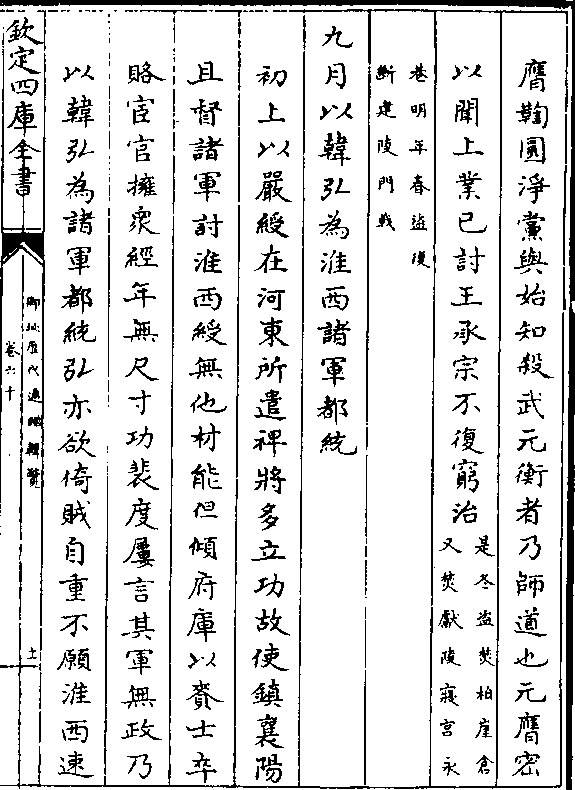 膺鞫圓淨黨與始知殺武元衡者乃師道也元膺密
以聞上業已討王承宗不復窮治
是冬盜焚柏崖倉
又焚獻陵寢宮永
巷明年春盜復
斷建陵門戟
九月以韓弘為淮西諸軍都統
初上以嚴綬在河東所遣裨將多立功故使鎮襄陽
且督諸軍討淮西綬無他材能但傾府庫以賚士卒
賂宦官擁衆經年無尺寸功裴度屢言其軍無政乃
以韓弘為諸軍都統弘亦欲倚賊自重不願淮西速
欽定四庫全書
御批歷代通鑑輯覽
卷六十
十一